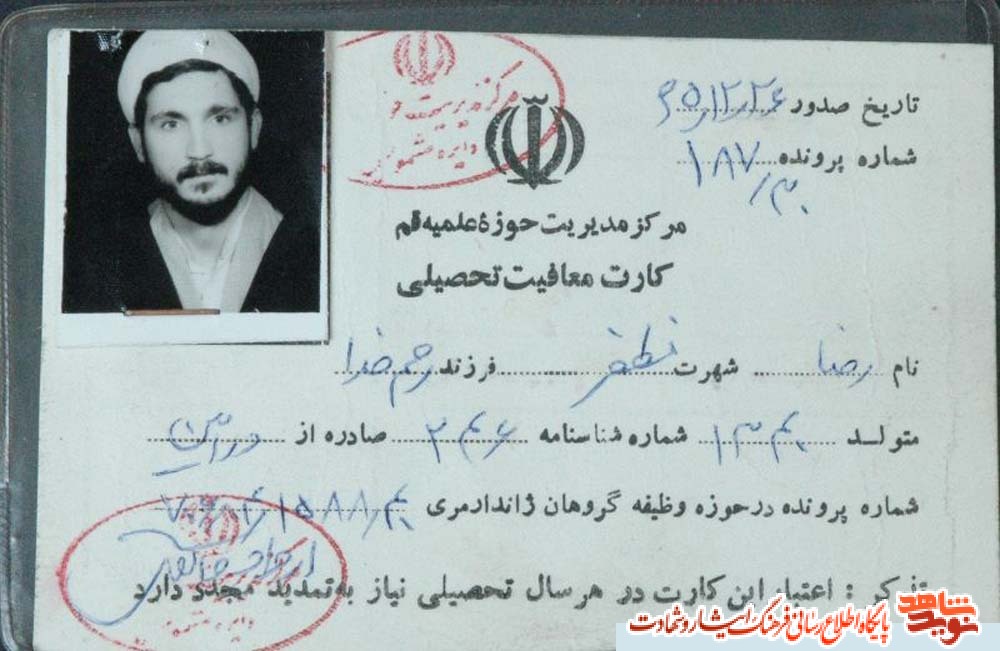 تاریخ صدور ۶۵/۱۲/۲۶
شماره پرونده ۱۸۷/۳۰
مرکز مدیریت حوزهٔ علمیه قم
کارت معافیت تحصیلی
نام رضا شهرت فرزند رحم خدا
متولد ۱۳۴۰ شماره شناسنامه ۲۴۶ صادره از ورامین
شماره پرونده در حوزه وظیفه گروهان ژاندارمری
تذکر : اعتبار این کارت در هر سال تحصیلی نیاز به تمدید مجدد دارد
مرکز مدیریت
نوید شاهد
پایگاه اطلاع رسانی فرهنگ ایثار و شهادت